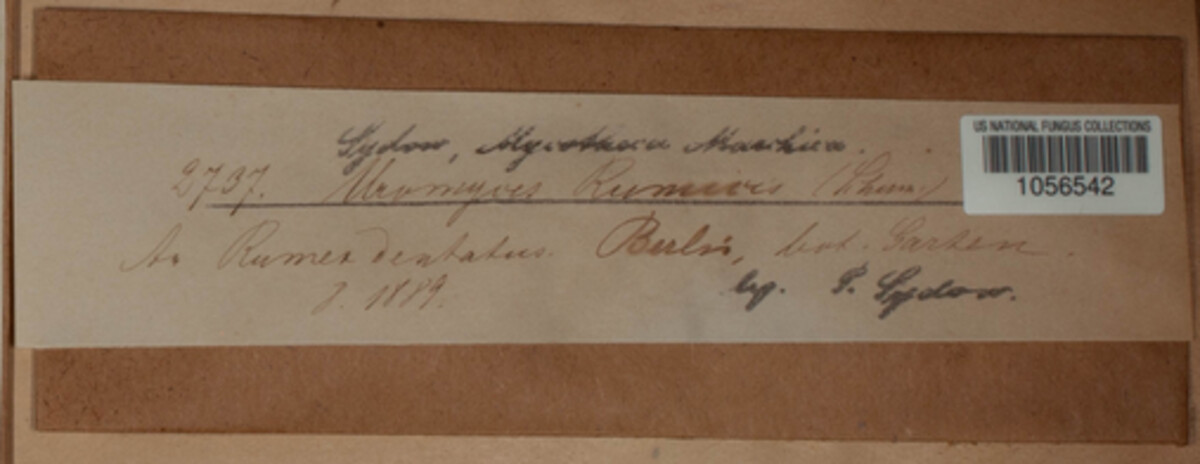 Sydow, Mycotheca Marchica.
2737. Uromyces Rumicis (Schum.)
An Rumex dentatus. Berlin, bot. Garten.
8. 1889.
leg. P. Sydow.
US NATIONAL FUNGUS COLLECTIONS
1056542